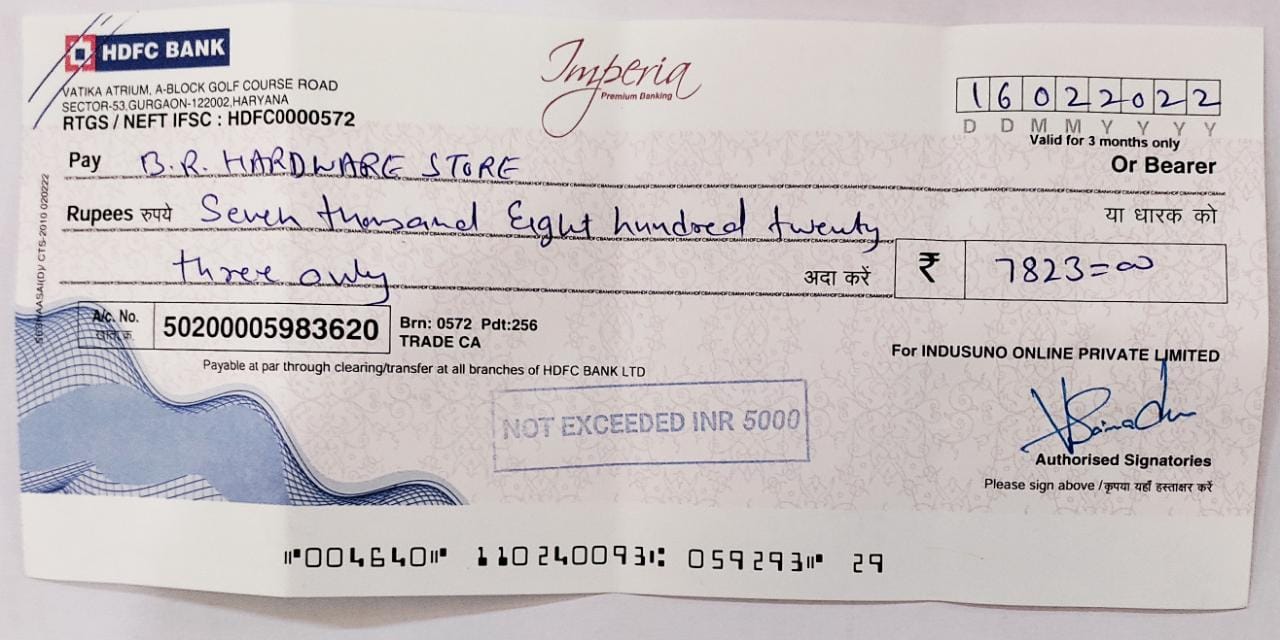 HDFC BANK
VATIKA ATRIUM, A-BLOCK GOLF COURSE ROAD
SECTOR-53,GURGAON-122002,HARYANA
RTGS / NEFT IFSC : HDFC0000572
Imperia
Premium Banking
16022022
D D M M Y Y Y Y
Valid for 3 months only
Pay B.R. HARDWARE STORE Or Bearer
Rupees रुपये Seven thousand Eight hundred twenty या धारक को
three only अदा करें ₹ 7823=00
A/c. No. 50200005983620 Brn: 0572 Pdt:256
TRADE CA
Payable at par through clearing/transfer at all branches of HDFC BANK LTD
For INDUSUNO ONLINE PRIVATE LIMITED
NOT EXCEEDED INR 5000
Authorised Signatories
Please sign above / कृपया यहाँ हस्ताक्षर करें
CTS-2010 020222
⑈004640⑈ 110240093⑆ 059293⑈ 29